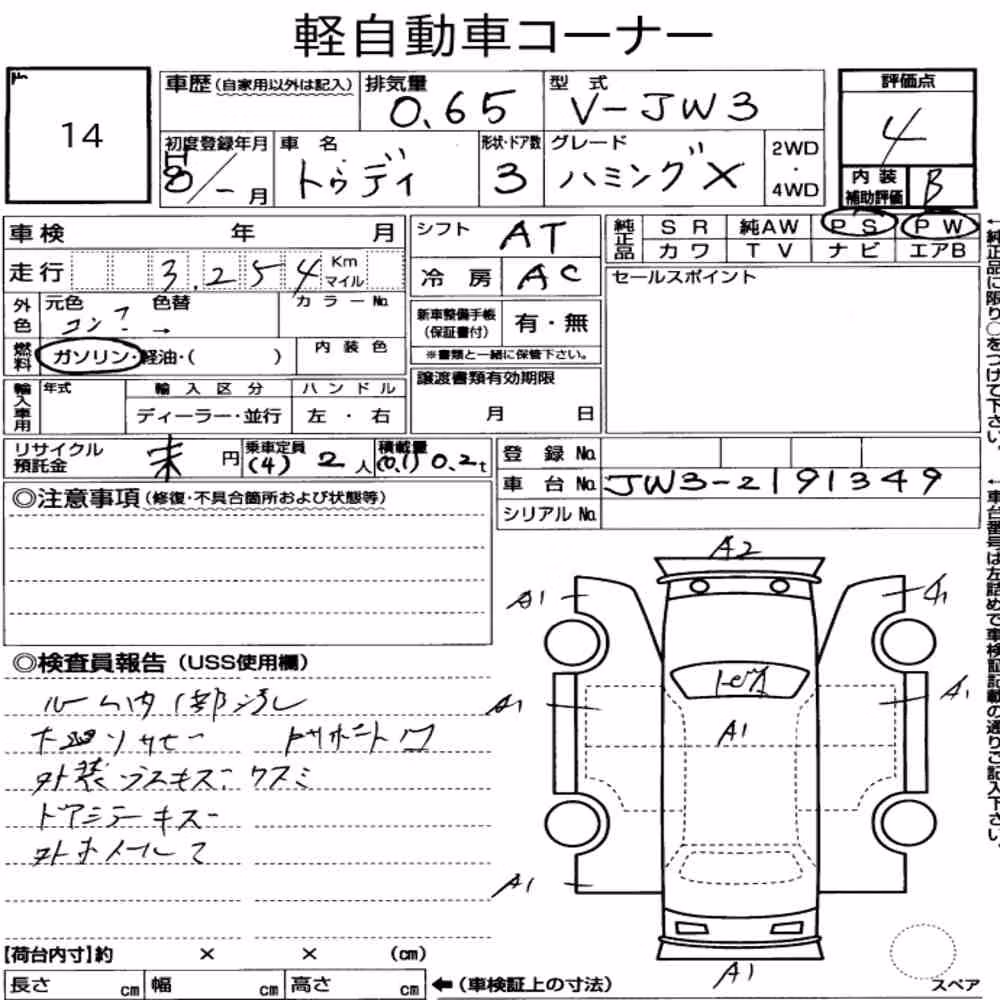 軽自動車コーナー
14
車歴(自家用以外は記入) 排気量 0.65 型式 V-JW3 評価点 4
初度登録年月 H8/-月 車名 トゥディ 形状・ドア数 3 グレード ハミングX 2WD・4WD 内装補助評価 B
車検 年 月 シフト AT 純正品 SR 純AW PS PW
カワ TV ナビ エアB
走行 3,254 Km マイル 冷房 AC セールスポイント
外色 元色 コン 色替 → カラーNo. 新車整備手帳(保証書付) 有・無
※書類と一緒に保管下さい。
燃料 ガソリン・軽油・( ) 内装色
譲渡書類有効期限 月 日
輸入車用 年式 輸入区分 ハンドル
ディーラー・並行 左・右
リサイクル預託金 未 円 乗車定員 (4) 2人 積載量 (0.1) 0.2t
登録No.
車台No. JW3-2191349
シリアルNo.
←純正品に限り○をつけて下さい。
←車台番号は左詰めで車検証記載の通りご記入下さい。
◎注意事項(修復・不具合箇所および状態等)
◎検査員報告(USS使用欄)
ルーム内
外装 キズ、クスミ
キズ
A2
A1
A1
A1
A1
A1
A1
A1
【荷台内寸】約 × × (cm)
長さ cm 幅 cm 高さ cm ←(車検証上の寸法)
スペア